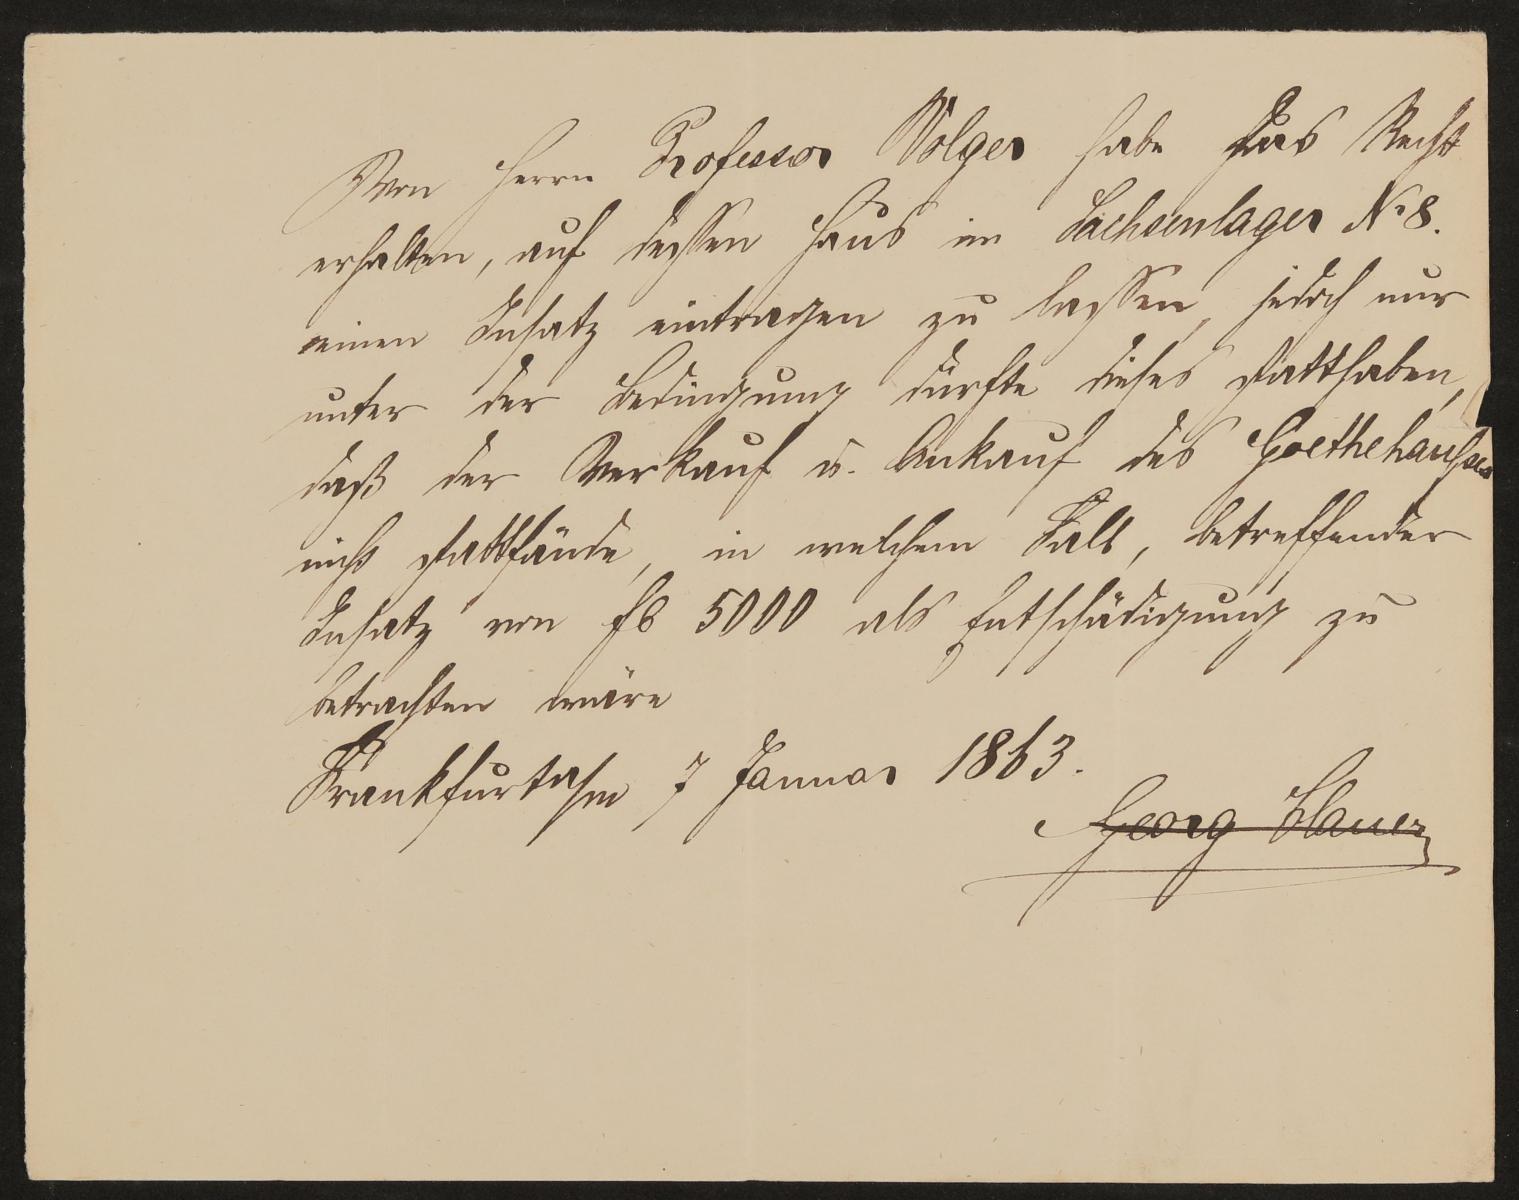 Von Herrn Professor Volger habe das Recht
erhalten, auf dessen Haus im Sachsenlager No 8.
einen Insatz eintragen zu lassen, jedoch nur
unter der Bedingung dürfte dieses statthaben,
daß der Verkauf u. Ankauf des Goethehauses
nicht stattfände, in welchem Fall, betreffender
Insatz von 5000 als Entschädigung zu
betrachten wäre
Frankfurt a/m 7 Januar 1863.
Georg